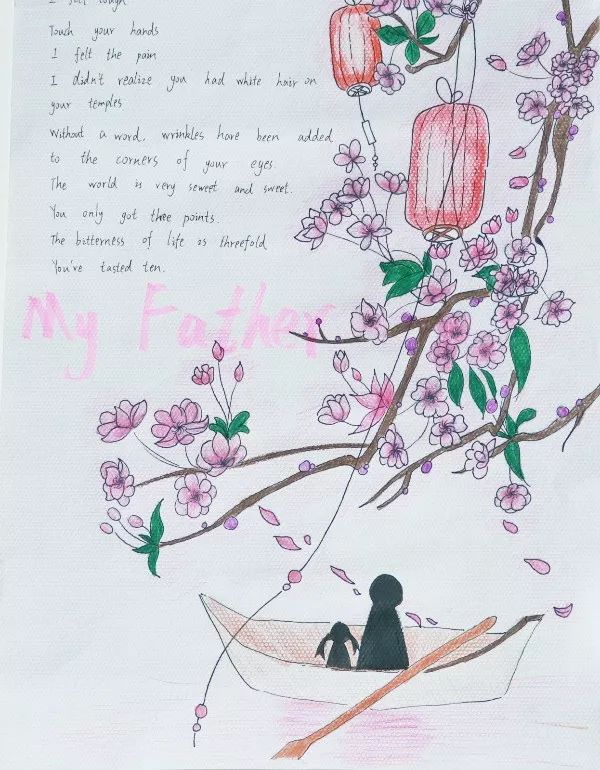 I felt
Touch your hands
I felt the pain
I didn't realize you had white hair on
your temples
Without a word, wrinkles have been added
to the corners of your eyes.
The world is very seweet and sweet.
You only got thee points.
The bitterness of life is threefold
You've tasted ten.
My Father